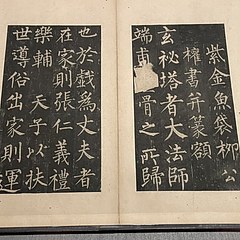 紫金魚袋柳公
權書并篆額
玄秘塔者大法師
端甫骨之所歸
也於戲為丈夫者
在家則張仁義禮
樂輔 天子以扶
世導俗出家則運